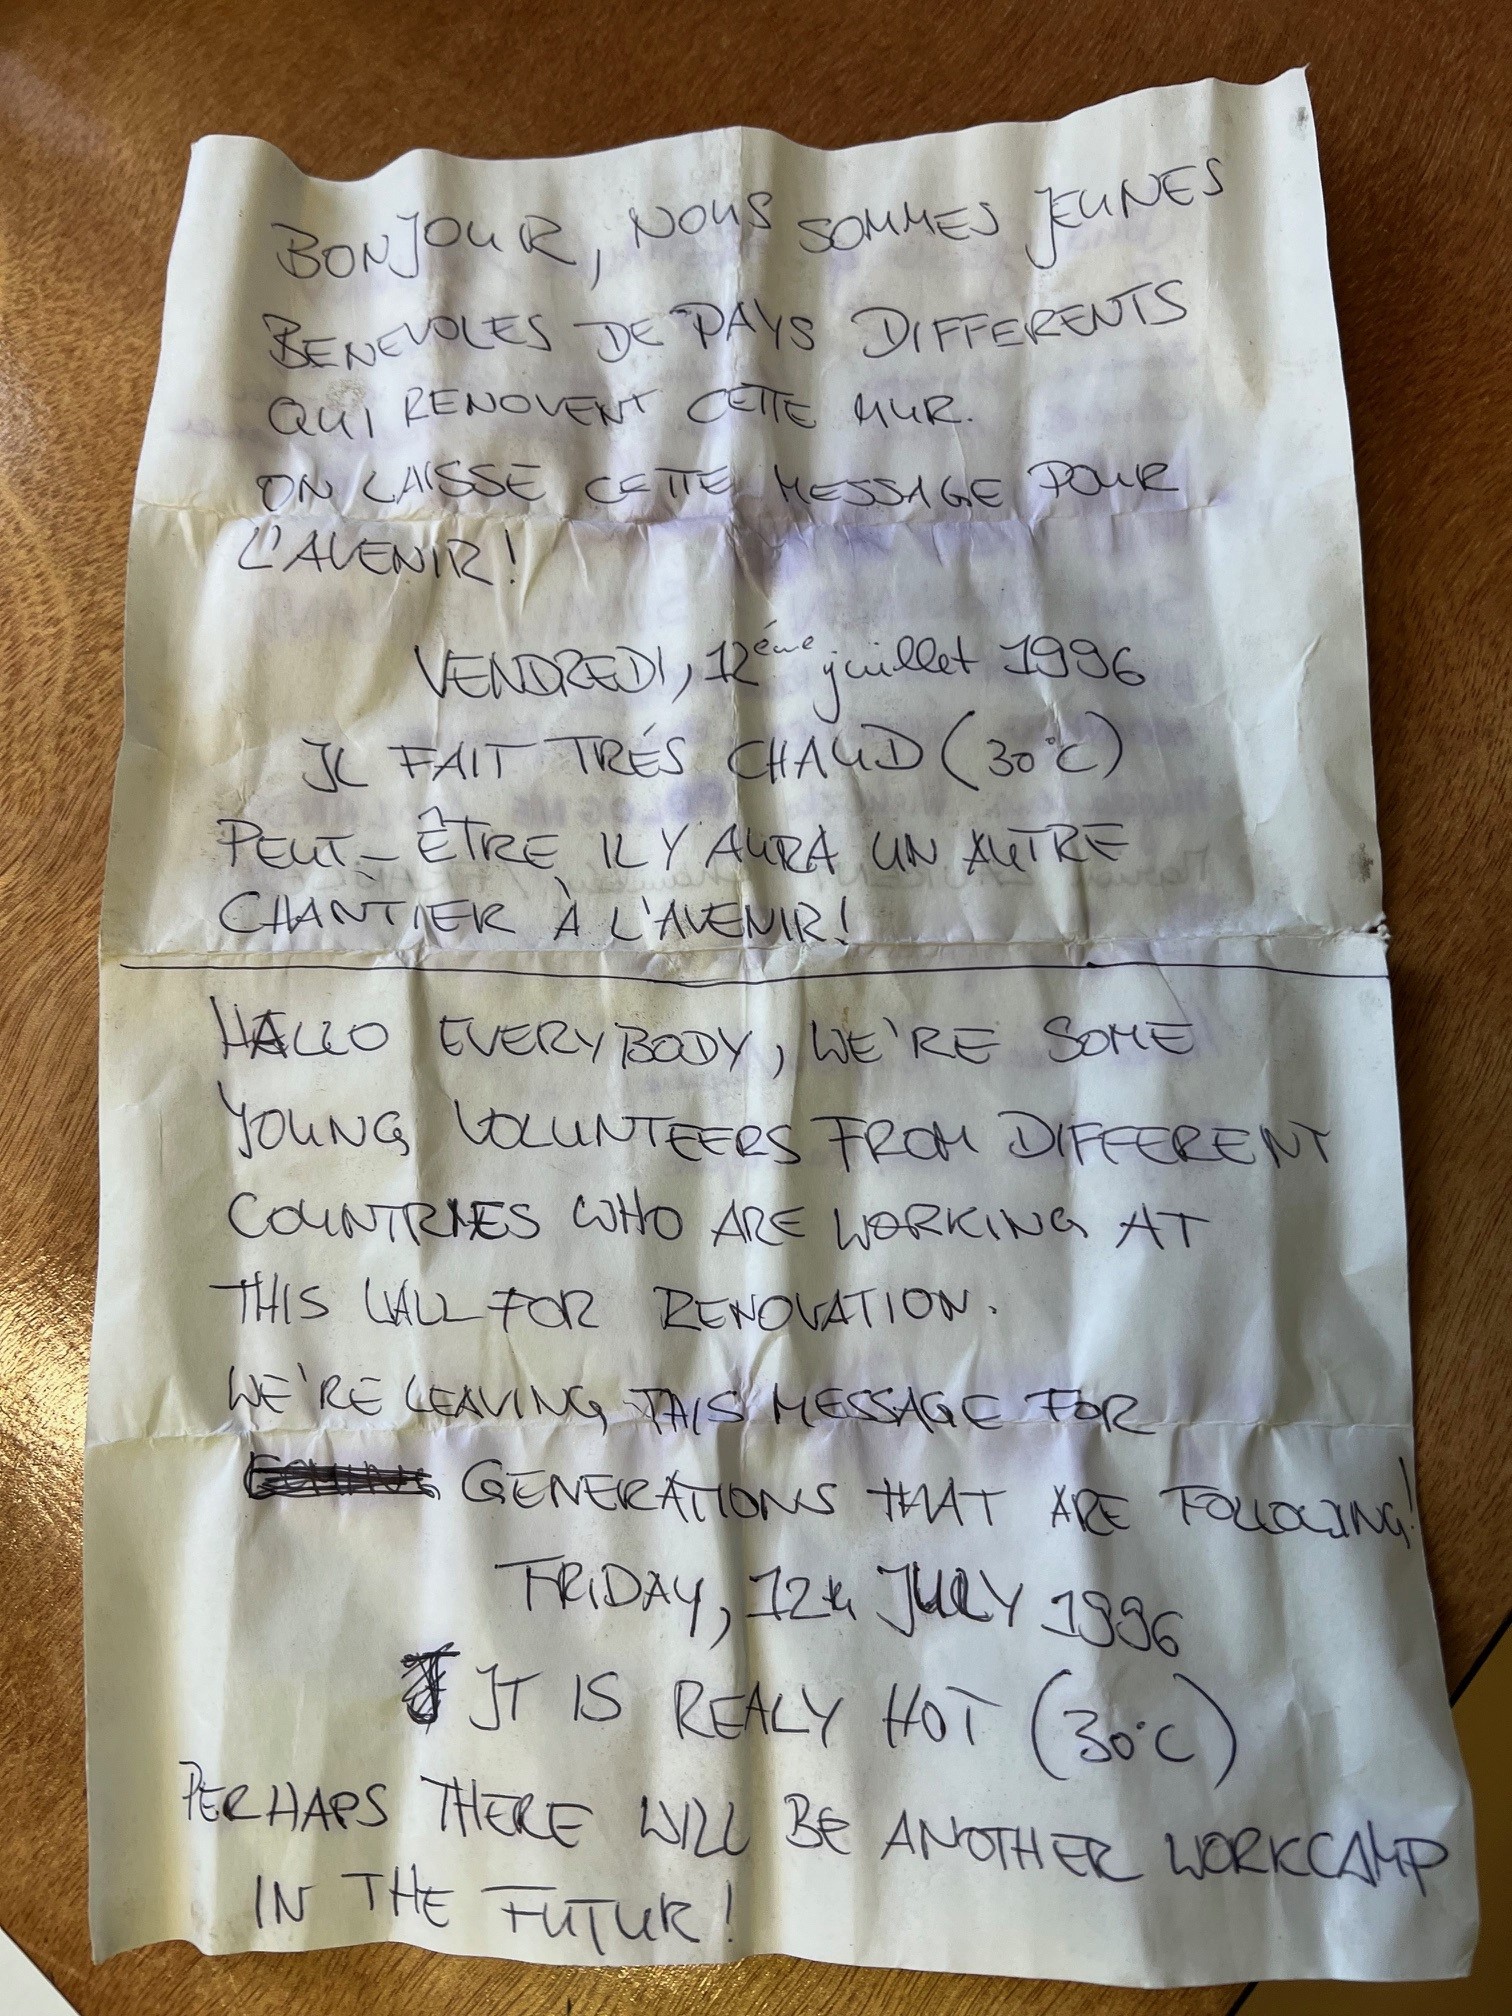 BONJOUR, NOUS SOMMES JEUNES
BENEVOLES DE PAYS DIFFERENTS
QUI RENOVENT CETTE MUR.
ON LAISSE CETTE MESSAGE POUR
L'AVENIR!
VENDREDI, 12éme juillet 1996
IL FAIT TRÉS CHAUD (30°C)
PEUT-ÊTRE IL Y AURA UN AUTRE
CHANTIER À L'AVENIR!
HALLO EVERYBODY, WE'RE SOME
YOUNG VOLUNTEERS FROM DIFFERENT
COUNTRIES WHO ARE WORKING AT
THIS WALL FOR RENOVATION.
WE'RE LEAVING THIS MESSAGE FOR
GENERATIONS THAT ARE FOLLOWING!
FRIDAY, 12th JULY 1996
IT IS REALY HOT (30°C)
PERHAPS THERE WILL BE ANOTHER WORKCAMP
IN THE FUTUR!